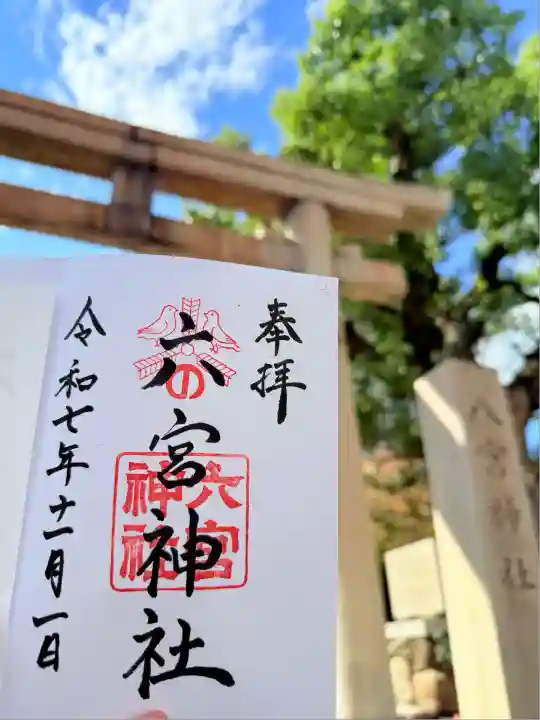 奉拝
六宮神社
六の
六宮
神社
令和七年十一月一日
八宮神社